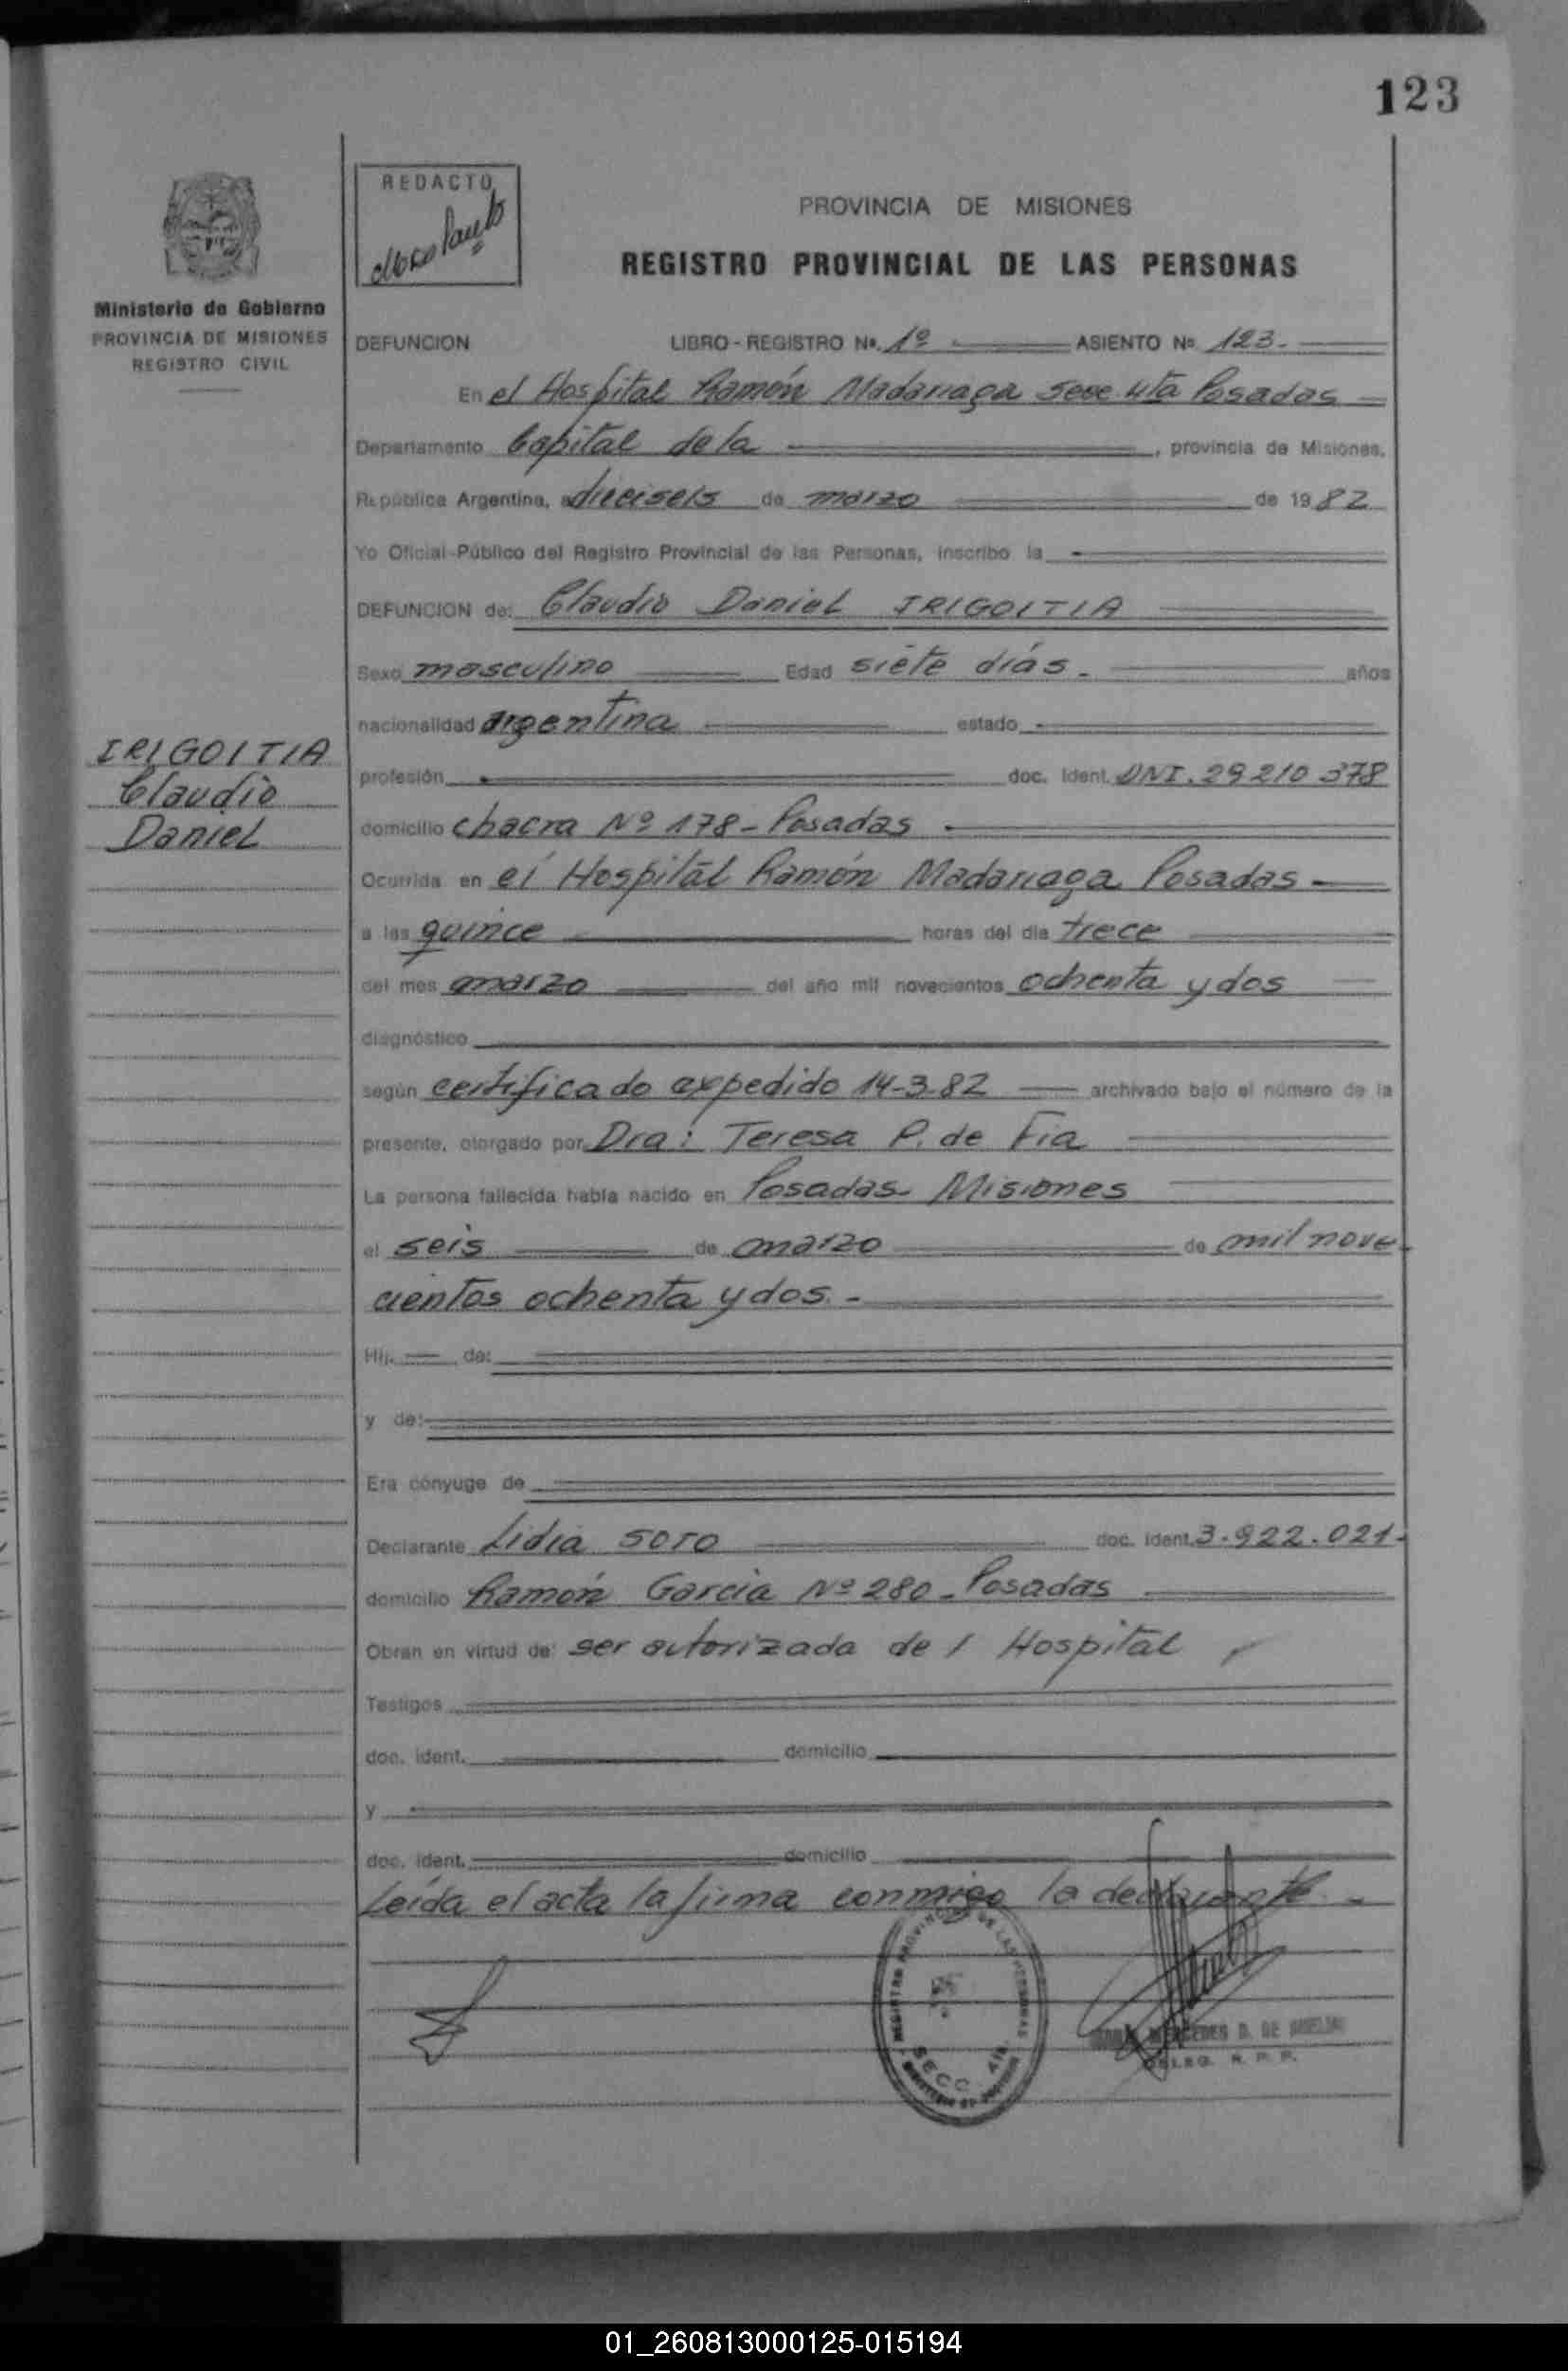 123
REDACTO
PROVINCIA DE MISIONES
REGISTRO PROVINCIAL DE LAS PERSONAS
Ministerio de Gobierno
PROVINCIA DE MISIONES
REGISTRO CIVIL
DEFUNCION LIBRO - REGISTRO Nº. 1º ASIENTO Nº 123.
En el Hospital Ramón Madariaga Secc. 4ta Posadas
Departamento Capital de la , provincia de Misiones,
República Argentina, a dieciseis de marzo de 1982
Yo Oficial Público del Registro Provincial de las Personas, inscribo la
DEFUNCION de: Claudio Daniel IRIGOITIA
Sexo masculino Edad siete días. años
nacionalidad argentina estado
IRIGOITIA
Claudio
Daniel
profesión doc. ident. DNI. 29.210.378
domicilio chacra Nº 178 - Posadas
Ocurrida en el Hospital Ramón Madariaga Posadas
a las quince horas del día trece
del mes marzo del año mil novecientos ochenta y dos
diagnóstico
según certificado expedido 14-3-82 archivado bajo el número de la
presente, otorgado por Dra: Teresa P. de Fia
La persona fallecida había nacido en Posadas - Misiones
el seis de marzo de mil nove
cientos ochenta y dos. -
Hij de:
y de:
Era cónyuge de
Declarante Lidia SOTO doc. ident. 3.922.021.
domicilio Ramón Garcia Nº 280 - Posadas
Obran en virtud de: ser autorizada de l Hospital
Testigos
doc. ident. domicilio
y
doc. ident. domicilio
Leída el acta la firma conmigo la declarante. -
REGISTRO PROVINCIAL DE LAS PERSONAS
SECC. 4ta.
MERCEDES D. DE
DELEG. R. P. P.
01_260813000125-015194